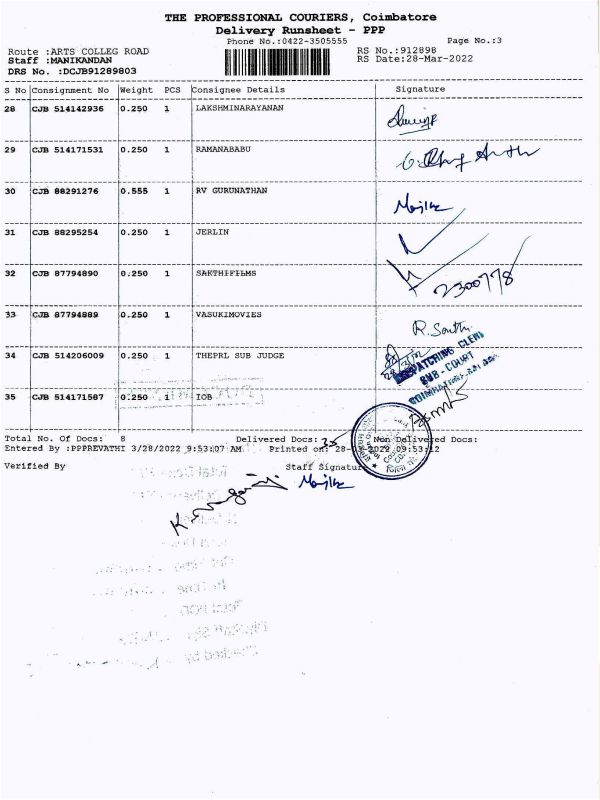 THE PROFESSIONAL COURIERS, Coimbatore
Delivery Runsheet - PPP
Phone No.:0422-3505555 Page No.:3
Route :ARTS COLLEG ROAD RS No.:912898
Staff :MANIKANDAN RS Date:28-Mar-2022
DRS No. :DCJB91289803
S No Consignment No Weight PCS Consignee Details Signature
28 CJB 514142936 0.250 1 LAKSHMINARAYANAN
29 CJB 514171531 0.250 1 RAMANABABU
30 CJB 88291276 0.555 1 RV GURUNATHAN
31 CJB 88295254 0.250 1 JERLIN
32 CJB 87794890 0.250 1 SAKTHIFILMS 2300778
33 CJB 87794889 0.250 1 VASUKIMOVIES R. Santhi
34 CJB 514206009 0.250 1 THEPRL SUB JUDGE
DESPATCHING CLERK
SUB-COURT
35 CJB 514171587 0.250 1 IOB
Total No. Of Docs: 8 Delivered Docs: 35 Non Delivered Docs:
Entered By :PPPREVATHI 3/28/2022 9:53:07 AM Printed on: 28-03-2022 09:53:12
Verified By Staff Signature